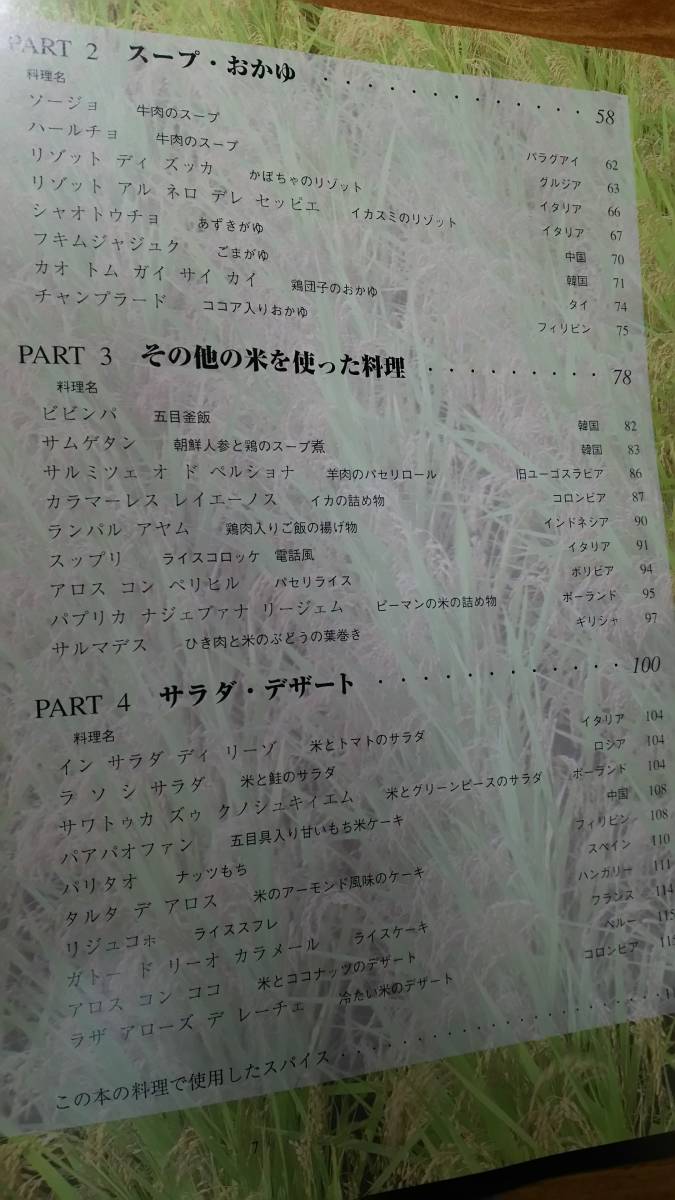 PART 2 スープ・おかゆ ・・・・・・・・・・・・・ 58
料理名
ソージョ 牛肉のスープ パラグアイ 62
ハールチョ 牛肉のスープ グルジア 63
リゾット ディ ズッカ かぼちゃのリゾット イタリア 66
リゾット アル ネロ デレ セッピエ イカスミのリゾット イタリア 67
シャオトウチョ あずきがゆ 中国 70
フキムジャジュク ごまがゆ 韓国 71
カオ トム ガイ サイ カイ 鶏団子のおかゆ タイ 74
チャンプラード ココア入りおかゆ フィリピン 75
PART 3 その他の米を使った料理 ・・・・・・・・・ 78
料理名
ビビンパ 五目釜飯 韓国 82
サムゲタン 朝鮮人参と鶏のスープ煮 韓国 83
サルミツェ オ ド ペルショナ 羊肉のパセリロール 旧ユーゴスラビア 86
カラマーレス レイエーノス イカの詰め物 コロンビア 87
ランパル アヤム 鶏肉入りご飯の揚げ物 インドネシア 90
スップリ ライスコロッケ 電話風 イタリア 91
アロス コン ペリヒル パセリライス ボリビア 94
パプリカ ナジェブァナ リージェム ピーマンの米の詰め物 ポーランド 95
サルマデス ひき肉と米のぶどうの葉巻き ギリシャ 97
PART 4 サラダ・デザート ・・・・・・・・・・・・ 100
料理名
イン サラダ ディ リーゾ 米とトマトのサラダ イタリア 104
ラ ソ シ サラダ 米と鮭のサラダ ロシア 104
サワトゥカ ズゥ クノシュキイエム 米とグリーンピースのサラダ ポーランド 104
パアパオファン 五目具入り甘いもち米ケーキ 中国 108
パリタオ ナッツもち フィリピン 108
タルタ デ アロス 米のアーモンド風味のケーキ スペイン 110
リジュコホ ライススフレ ハンガリー 111
ガトー ド リーオ カラメール ライスケーキ フランス 114
アロス コン ココ 米とココナッツのデザート ペルー 115
ラザ アローズ デ レーチェ 冷たい米のデザート コロンビア 115
この本の料理で使用したスパイス ・・・・・・・・・・・・・・・・・
7